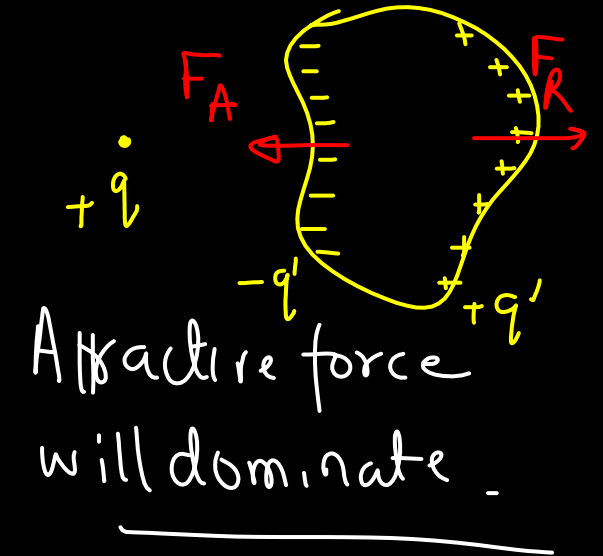 F_A
F_R
+q
-q'
+q'
Attractive force
will dominate.